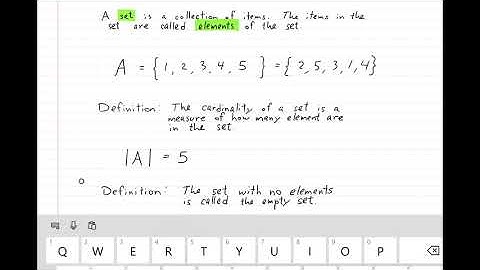 A set is a collection of items. The items in the
set are called elements of the set.
A = { 1, 2, 3, 4, 5 } = { 2, 5, 3, 1, 4 }
Definition: The cardinality of a set is a
measure of how many element are
in the set
|A| = 5
Definition: The set with no elements
is called the empty set.
1 2 3 4 5 6 7 8 9 0
Q W E R T Y U I O P